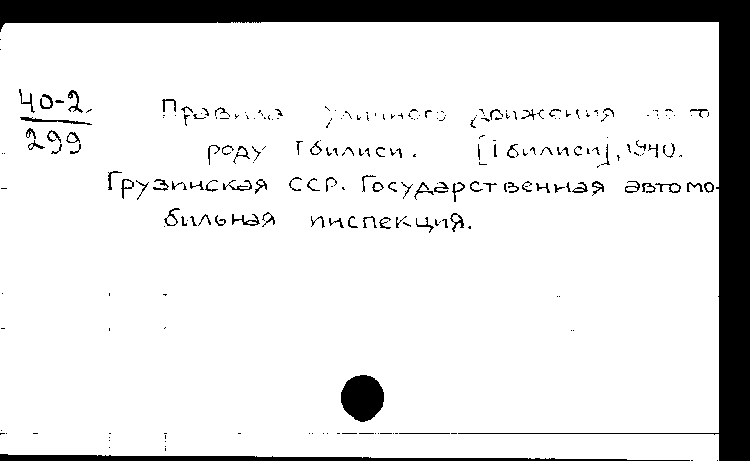 40-2
299
Правила уличного движения по го
роду Тбилиси. [Тбилиси], 1940.
Грузинская ССР. Государственная автомо-
бильная инспекция.